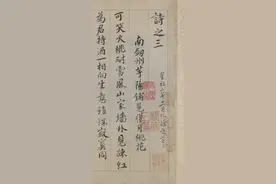 詩之三
南劍州芋陽鋪見臘月桃花
可笑夭桃耐雪風山家墻外見疎紅
為君持酒一相向生意雖殊寂寞同